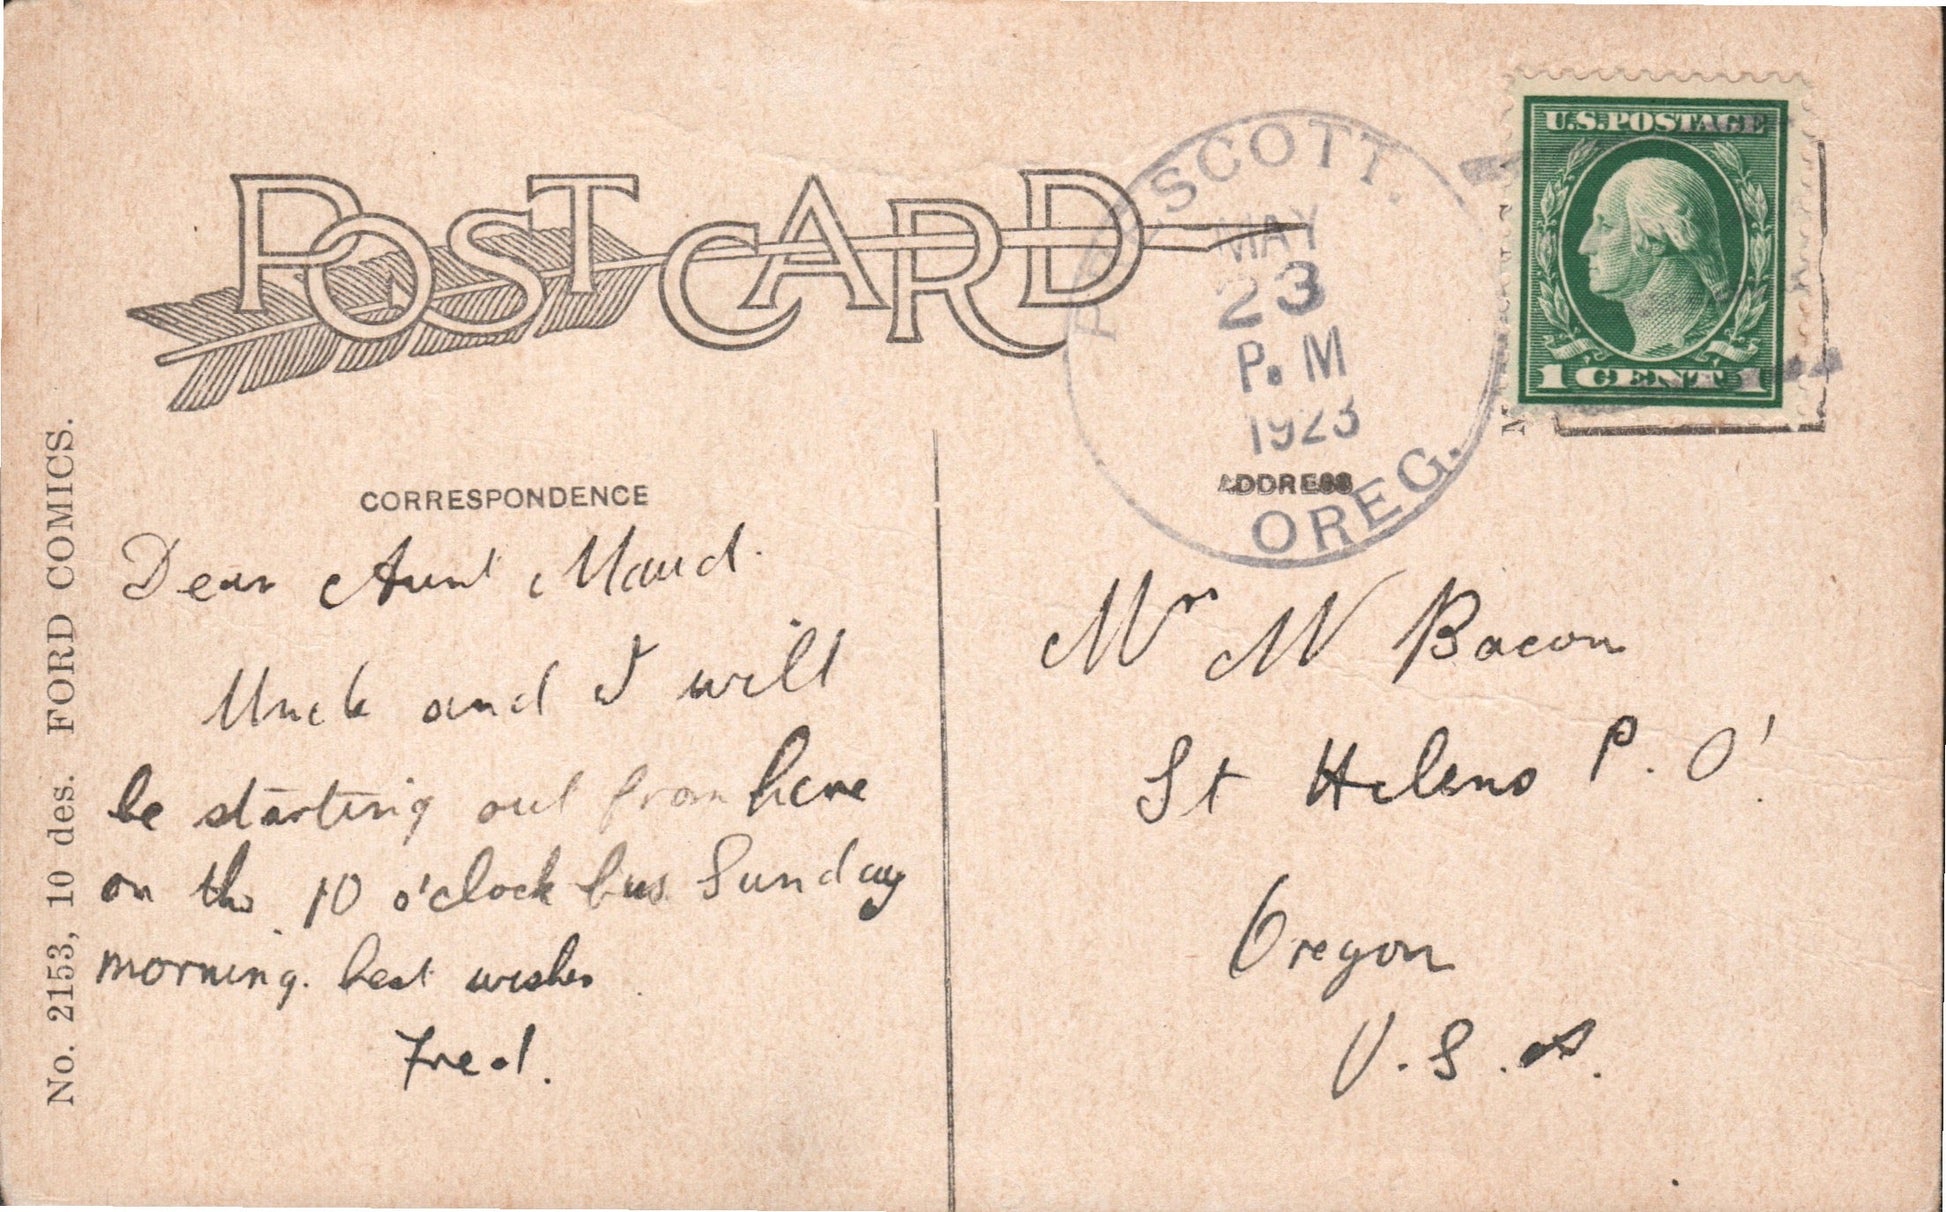 POST CARD
PRESCOTT.
MAY
23
P.M
1923
OREG.
U.S.POSTAGE
1 CENT 1
No. 2153, 10 des. FORD COMICS.
CORRESPONDENCE
Dear Aunt Maud.
Unck and I will
be starting out from here
on the 10 o'clock bus Sunday
morning. best wishes.
Fred.
ADDRESS
Mrs W Bacon
St Helens P. O.
Oregon
U. S. A.